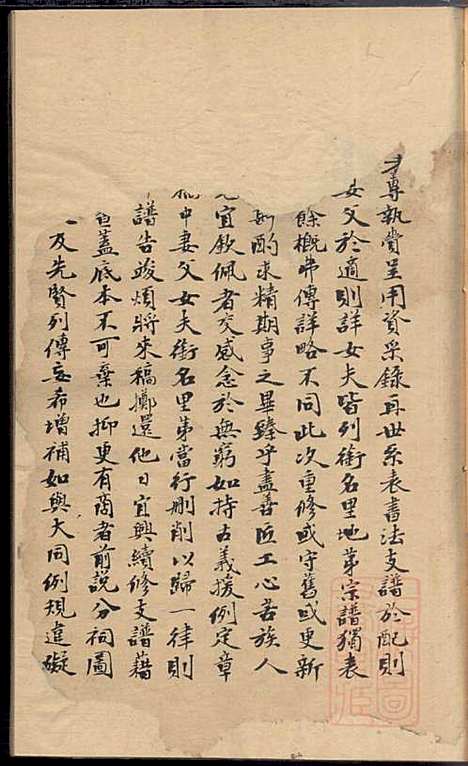 専執賞呈用資采錄再世系表書法支譜於配則
女父於適則詳女夫皆列銜名里地第宗譜獨表
餘概弗傳詳略不同此次重修或守舊或更新
酌求精期事之畢臻乎盡善匠工心苦族人
宜欽佩者交感念於無窮如持古義援例定章
中妻父女夫銜名里第當行刪削以歸一律則
譜告竣煩將來稿擲還他日宜興續修支譜藉
蓋底本不可棄也抑更有商者前說分祠圖
一及先賢列傳忘希增補如與大同例規違礙